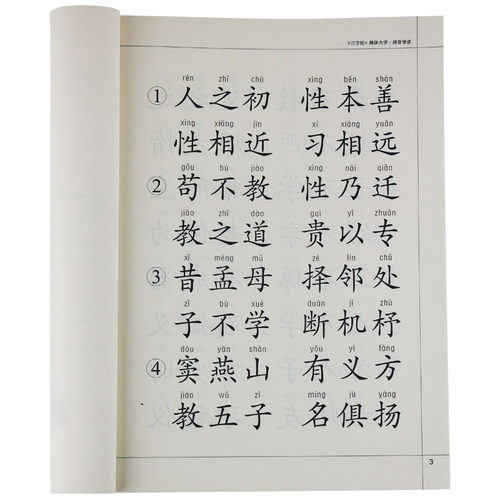 《三字经》楷体大字·拼音导读
rén zhī chū xìng běn shàn
①人之初 性本善
xìng xiāng jìn xí xiāng yuǎn
性相近 习相远
gǒu bù jiào xìng nǎi qiān
②苟不教 性乃迁
jiào zhī dào guì yǐ zhuān
教之道 贵以专
xī mèng mǔ zé lín chǔ
③昔孟母 择邻处
zǐ bù xué duàn jī zhù
子不学 断机杼
dòu yān shān yǒu yì fāng
④窦燕山 有义方
jiào wǔ zǐ míng jù yáng
教五子 名俱扬
3